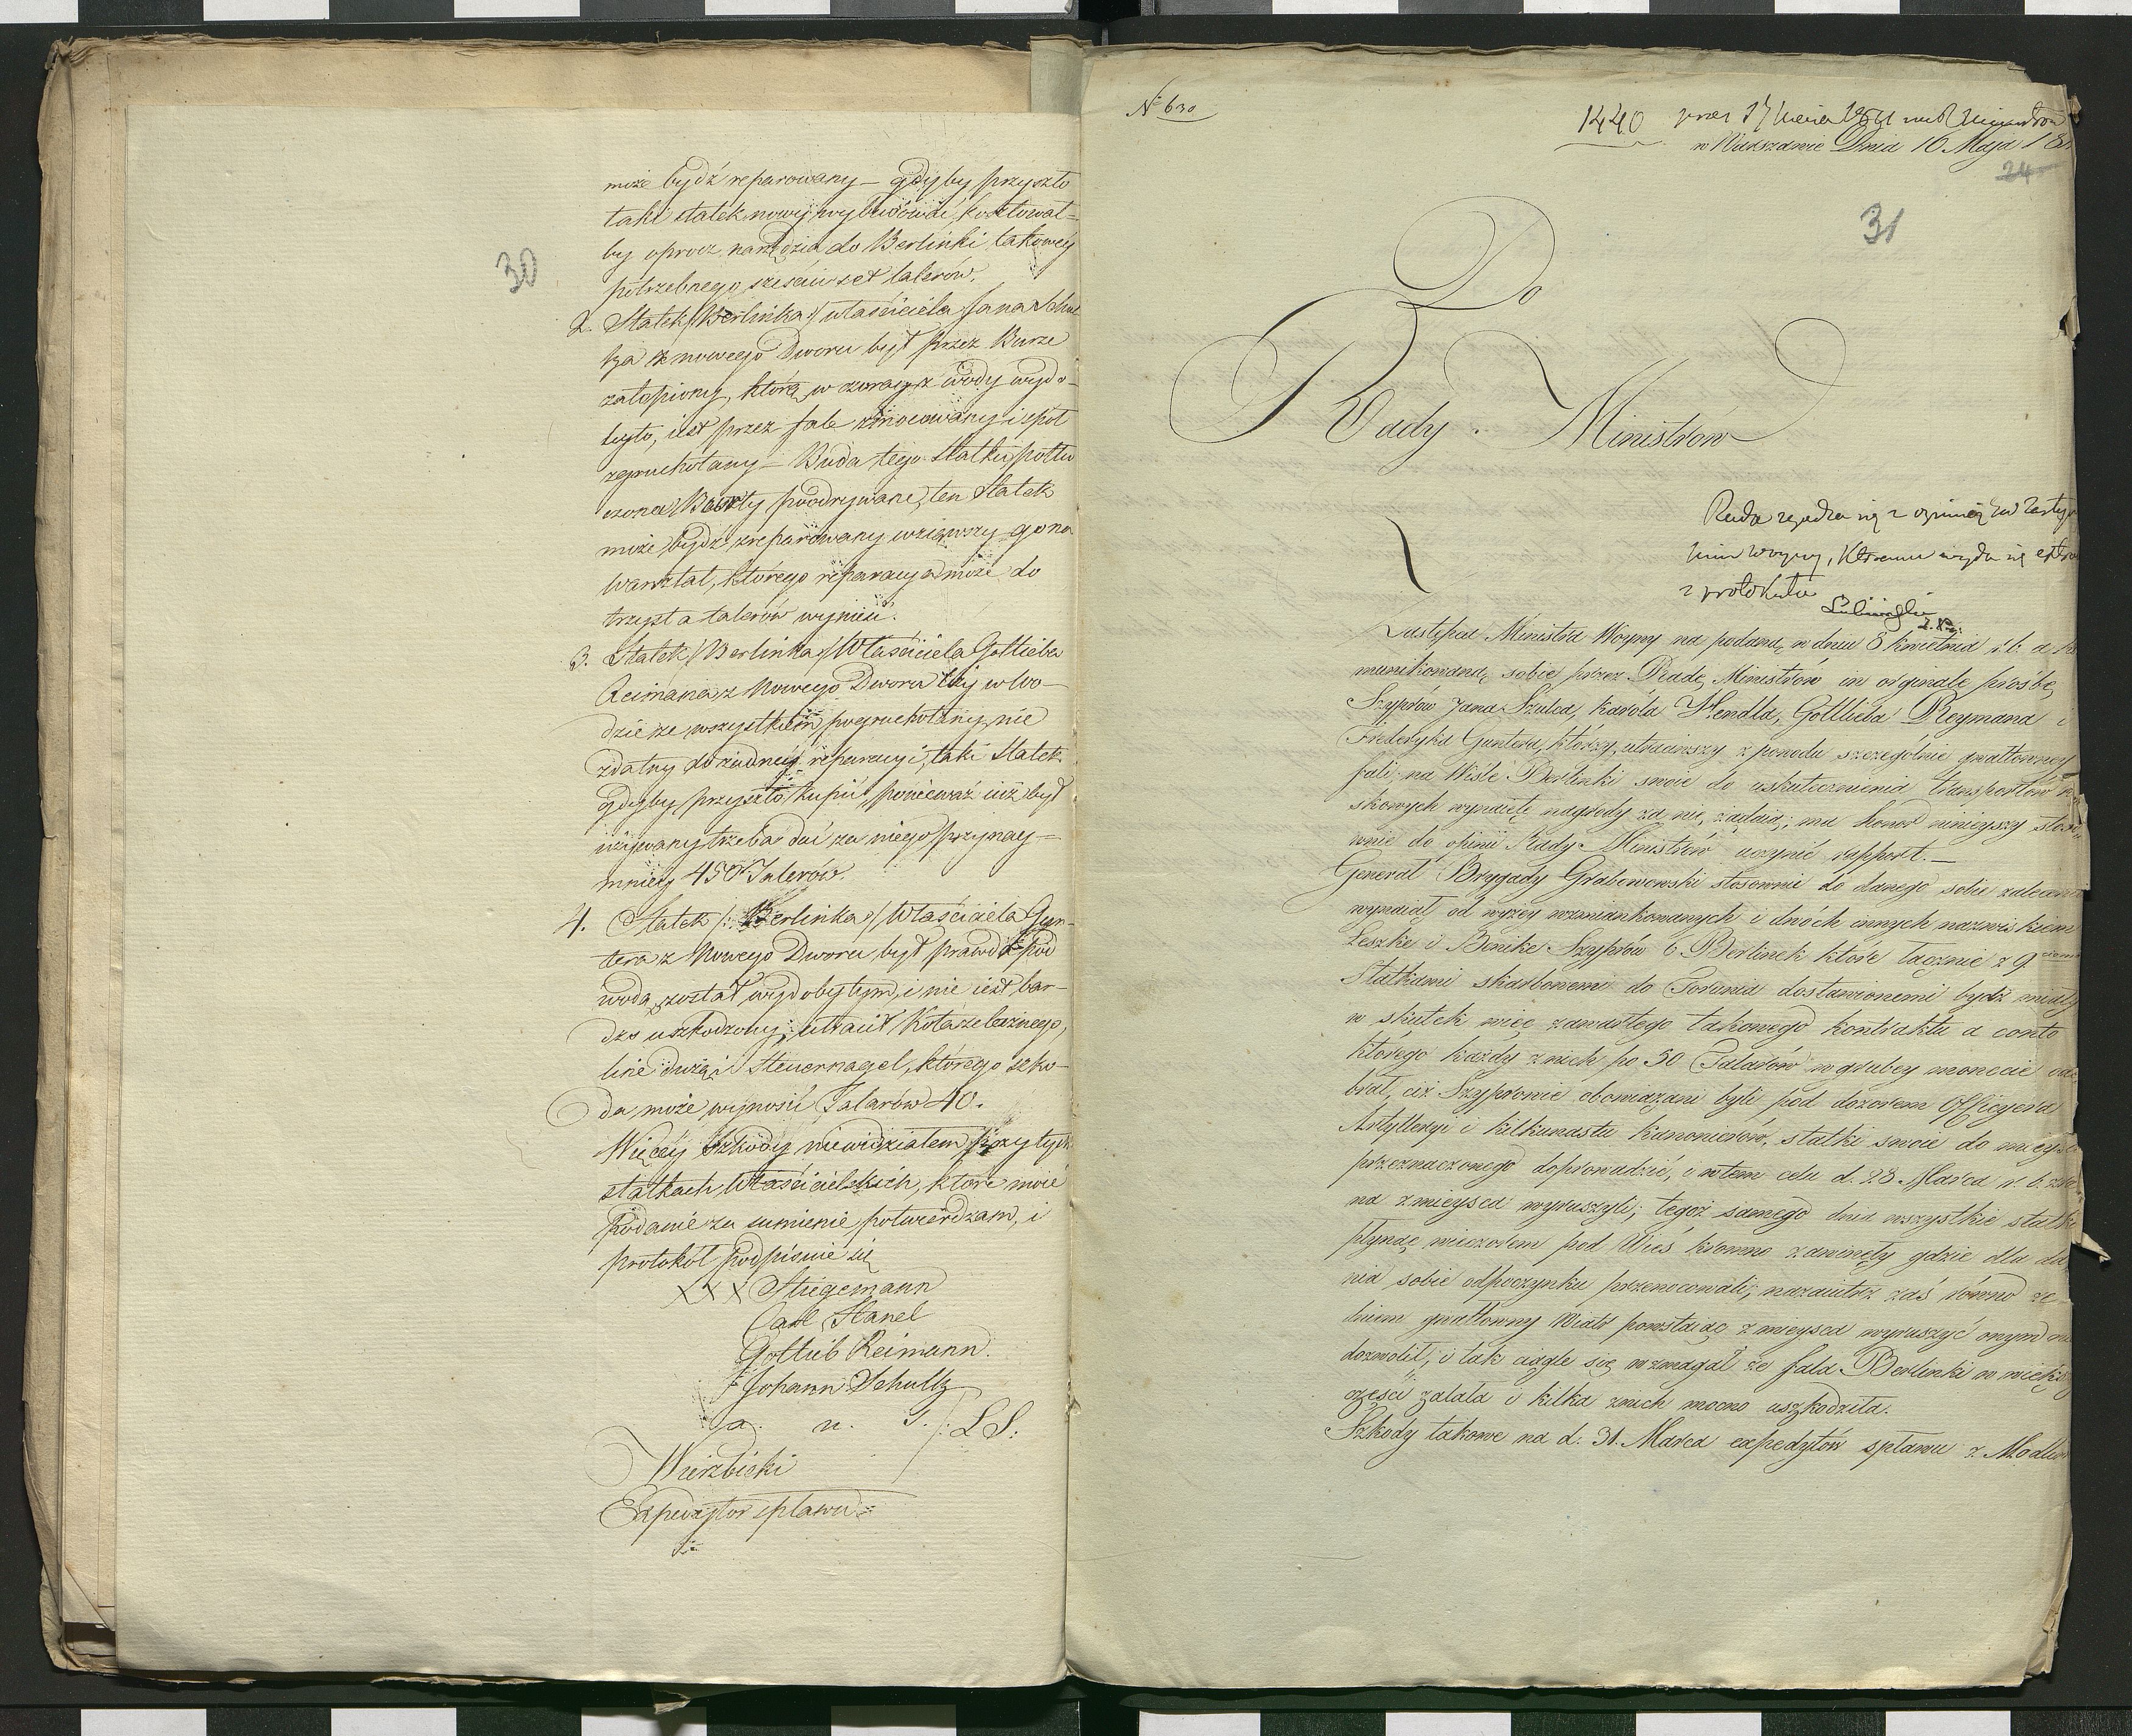 30
może bydź reparowany – gdyby przyszło
taki statek nowy wybudować, kosztował=
by oprocz narzędzia do Berlinki takowey
potrzebnego sześciuset talerów.
2. Statek /:Berlinka:/ właściciela Jana Schul
tza z nowego Dworu był przez Burze
zatopiony, którą w czoraysz wody wydo-
byto, iest przez fale zmocowany i spół
zgruchotany – Buda tego statku potłu
czona Bourty poodrywane, ten statek
może bydź zreparowany wziąwszy go na
warsztat, którego reparacya może do
trzysta talerów wynieść.
3. Statek /:Berlinka:/ Właściciela Gottlieba
Reimana z Nowego Dworu leży w wo-
dzie ze wszystkiem pogruchotany, nie
zdatny do żadney reparacyi, taki statek
gdyby przyszło kupić, ponieważ iuż był
używany trzeba dać za niego przynay=
mniey 450 Talerów.
4. Statek /:Berlinka:/ Właściciela Gyn-
tera z Nowego Dworu był prawda pod
wodą, został wydobytym, i nie iest bar-
dzo uszkodzony; utracił Kota żelaznego,
linę dużą i Steuernagel, którego szko-
da może wynosić Talarów 40.
Więcey szkody niewidziałem przy tych
statkach Właścicielskich, które moie
podanie za sumienie potwierdzam, i
protokół podpisuie się
XXX Stiegemann
Carl Hanel
Gottlieb Reimann.
Johann Schultz
a. u. S. /: LS:
Wierzbicki
Expedytor spławu
No 630
1440
w Warszawie Dnia 16 Maja 18
24
31
Do
Rady Ministrów
Rada zgadza się z opinią Zastęp
Min Woyny, któremu wyda się extra
z protokułu
Zastępca Ministra Woyny na podaną w dniu 8 kwietnia r. b. a ko
munikowaną sobie przez Radę Ministrów in orginale prośbę
Szyprów Jana Szulca, Karola Hendla, Gottlieba Reymana i
Frederyka Guntera, którzy utraciwszy z powodu szczególnie gwałtowney
fali na Wiśle Berlinki swoie do uskutecznienia transportów wo
skowych wynaięte nagrody za nie żądaią; ma honor ninieyszy stoso
wnie do opinii Rady Ministrów uczynić rapport. —
Generał Brygady Grabowski stosownie do danego sobie zalecenia
wynaiął od wyżey wzmiankowanych i dwóch innych nazwiskiem
Leszke i Benike Szyprów 6 Berlinek które łącznie z 9cioma
Statkami skarbowemi do Torunia dostawionemi bydź miały
w skutek więc zawartego takowego kontraktu a conto
którego każdy z nich po 50 Talarów w grubey monecie ode
brał, ciż Szyprowie obowiązani byli pod dozorem Officyera
Artylleryi i kilkunastu kanonierów, statki swoie do mieysca
przeznaczonego doprowadzić, i w tem celu d. 28. Marca r. b. z ra
na z mieysca wyruszyli; tegoż samego dnia wszystkie statki
płynąc wieczorem pod Wieś kromno zawinęły gdzie dla da
nia sobie odpoczynku przenocowali; nazaiutrz zaś równo ze
dniem gwałtowny Wiatr powstaiąc z mieysca wyruszyć onym nie
dozwolił, i tak ciągle się wzmagał że fala Berlinki w większey
części zalała i kilka z nich mocno uszkodziła.
Szkody takowe na d. 31. Marca expedytor spławu z Modlin